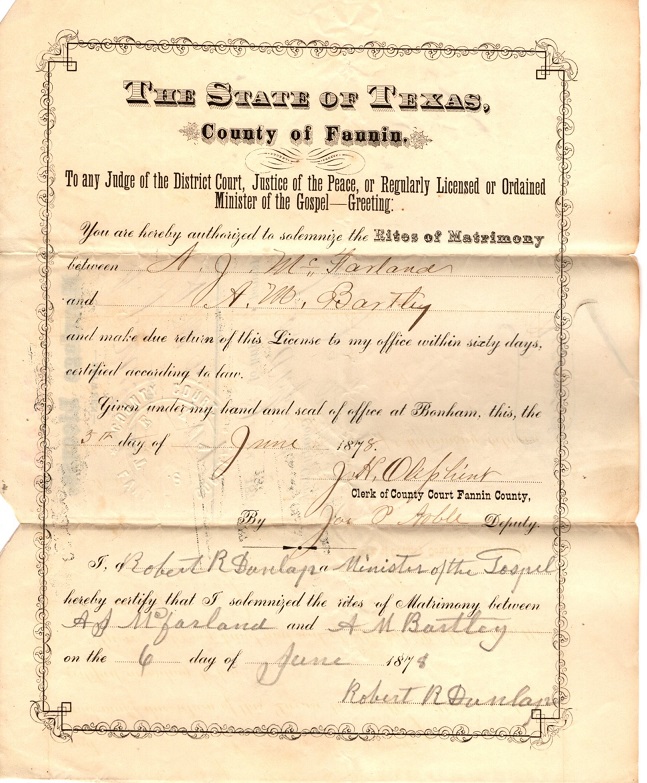 The State of Texas,
County of Fannin.
To any Judge of the District Court, Justice of the Peace, or Regularly Licensed or Ordained
Minister of the Gospel—Greeting:
You are hereby authorized to solemnize the Rites of Matrimony
between A. J. McFarland
and A. M. Bartley
and make due return of this License to my office within sixty days,
certified according to law.
Given under my hand and seal of office at Bonham, this, the
5th day of June 1878.
J. H. Oliphint
Clerk of County Court Fannin County,
By P. Noble Deputy.
I, Robert R Dunlap a Minister of the Gospel
hereby certify that I solemnized the rites of Matrimony between
A J McFarland and A M Bartley
on the 6 day of June 1878
Robert R Dunlap